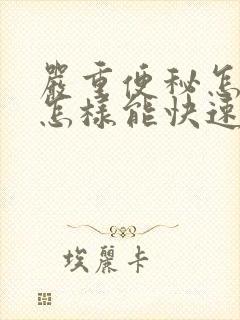 嚴重便秘怎
怎樣能快速
埃麗卡